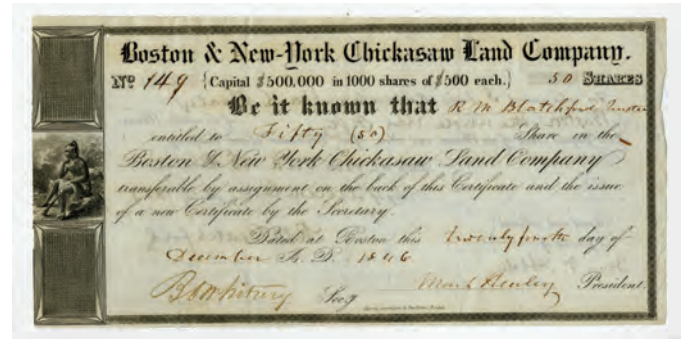 Boston & New-York Chickasaw Land Company.
No 149 {Capital $500,000 in 1000 shares of $500 each.} 50 SHARES
Be it known that R M Blatchford Trustee
entitled to Fifty (50) Share in the
Boston & New York Chickasaw Land Company
transferable by assignment on the back of this Certificate and the issue
of a new Certificate by the Secretary.
Dated at Boston this twenty fourth day of
December A. D. 1846
Secy President.